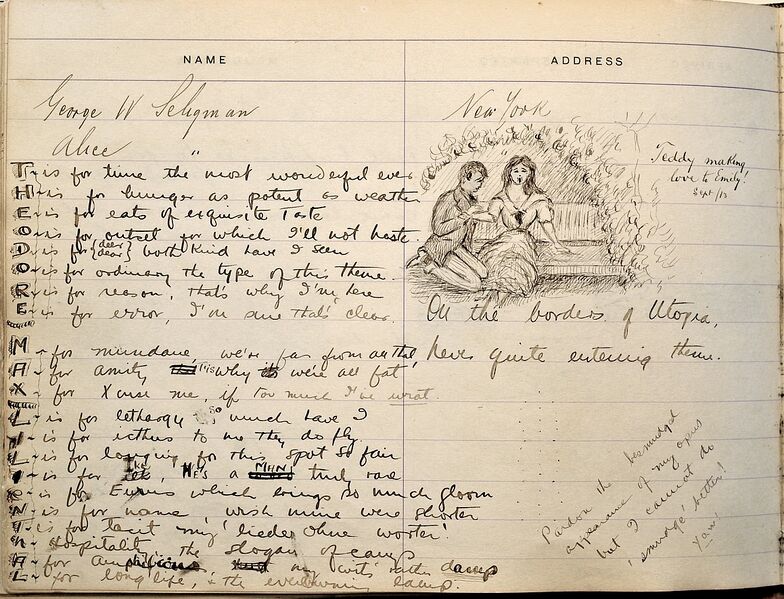 NAME
ADDRESS
George W Seligman
New York
Alice "
T - is for time the most wonderful ever
H - is for hunger as potent as weather
E - is for eats of exquisite taste
O - is for outset for which I'll not haste.
D - is for {deer dear} both kind have I seen
O - is for ordinary the type of this theme.
R - is for reason, that's why I'm here
E - is for error, I'm sure that's clear.
M - for mundane, we're far from all that,
A - for amity this is why we're all fat,
X - for Xcuse me, if too much I've
L - is for lethargy so much have I
I - is for to me they do fly
L - is for longing for this spot so fair
I - is for Ike, HE'S a MAN truly rare
E - is for which brings so much gloom
N - is for name, wish mine were shorter
T - is for tacit my lieder ohne worter!
H - Hospitality the slogan of camp
A - for my wits rather damp
L - for long life, & the everburning lamp.
"Teddy making
love to Emily"
Sept/13
On the borders of Utopia,
Never quite entering there.
Pardon the besmudged
appearance of my opus
but I cannot do
'emsorge' better!